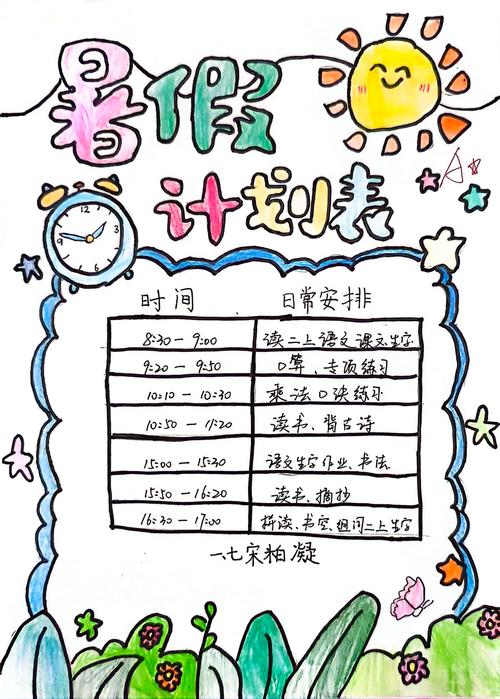 暑假
计划表
A
12
9
时间 日常安排
8:30-9:00 读二上语文课文生字
9:20-9:50 口算、专项练习
10:10-10:30 乘法口诀练习
10:50-11:20 读书、背古诗
15:00-15:30 语文生字作业、书法
15:50-16:20 读书、摘抄
16:30-17:00 拼读、书空、组词二上生字
一.七宋柏凝